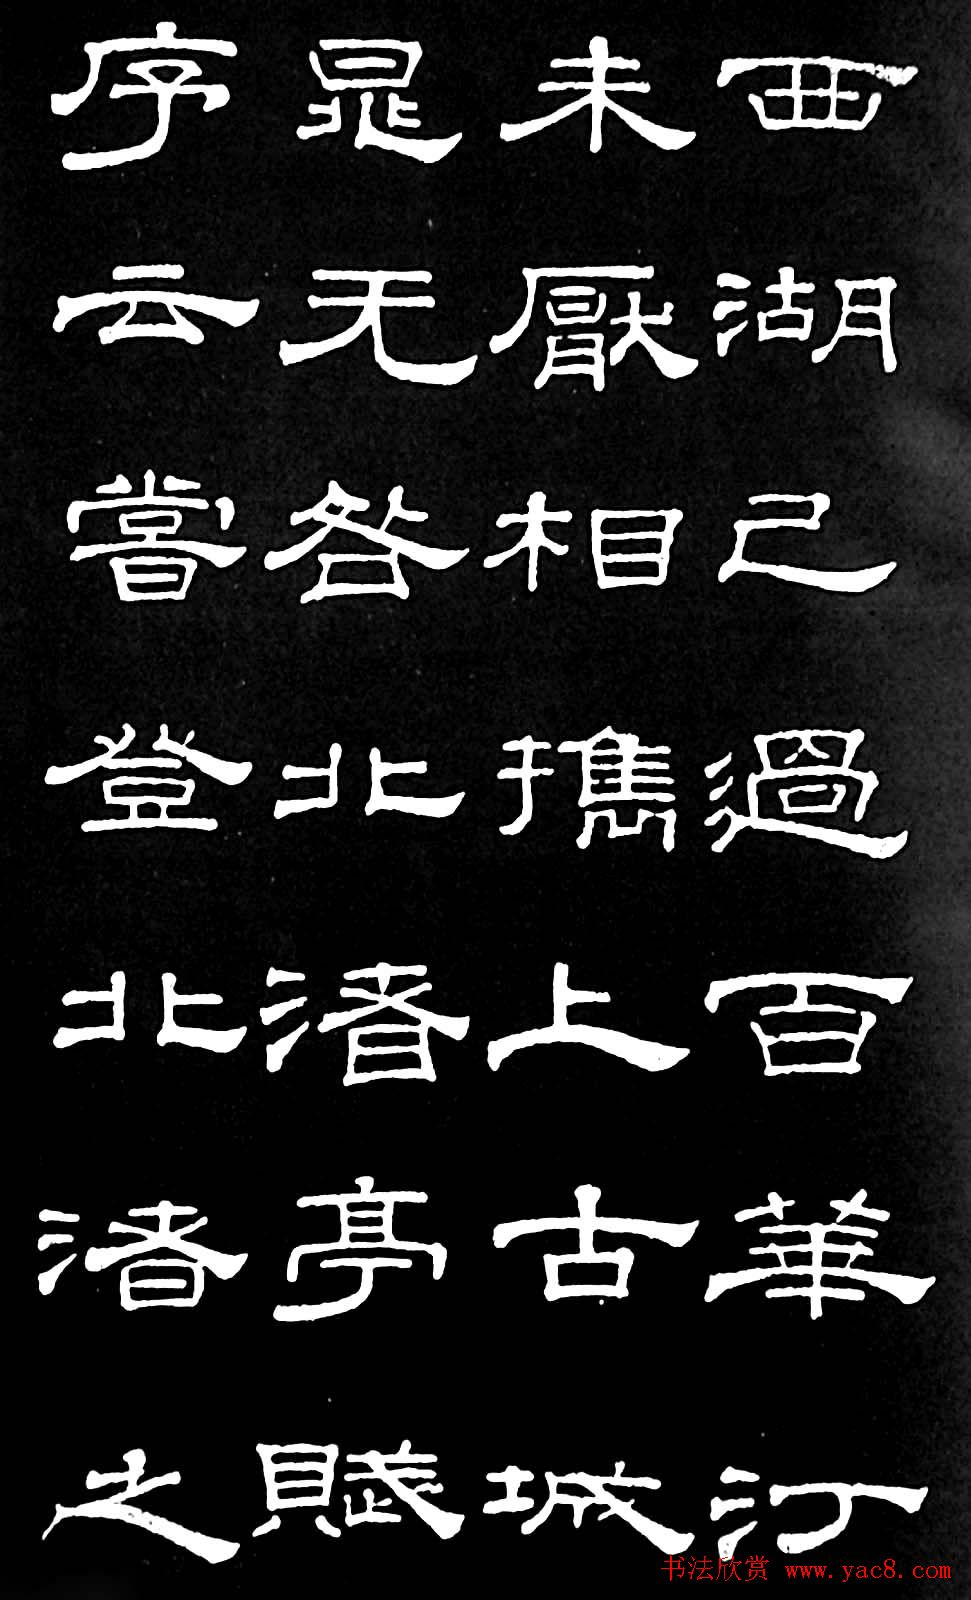 西湖已過百華汀
未厭相攜上古城
晁无咎北渚亭賦
序云嘗登北渚之
书法欣赏 www.yac8.com